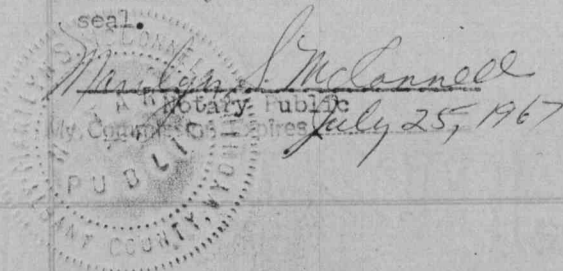 seal.
Marilyn S. McConnell
Notary Public
My Commission Expires July 25, 1967
MARILYN S. McCONNELL
NOTARY
PUBLIC
ALBANY COUNTY, WYOMING